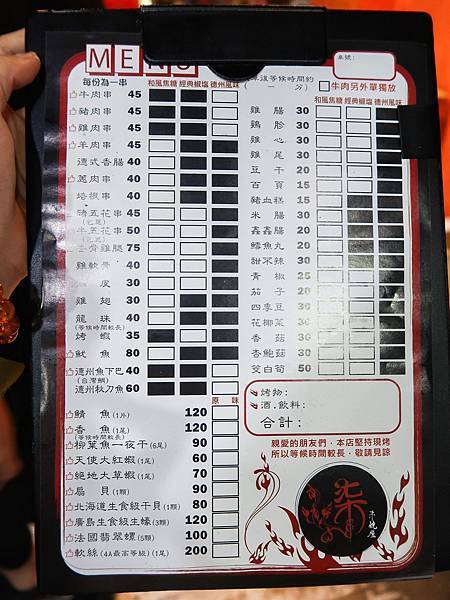 MENU
每份為一串
和風焦糖 經典椒塩 德州風味
牛肉串 45
豬肉串 45
雞肉串 45
羊肉串 45
德式香腸 40
蔥肉串 40
培根串 40
豬五花串 45
牛五花串 50
去骨雞腿 75
雞軟骨 40
皮 30
雞翅 30
龍珠 40
(等候時間較長)
烤蝦 35
魷魚 80
德州魚下巴 40
(台灣鯛)
德州秋刀魚 60
原味
鯖魚(1片) 120
香魚(1尾) 120
(等候時間較長)
柳葉魚一夜干(6尾) 90
天使大紅蝦(1尾) 60
絕地大草蝦(1尾) 70
扇貝(1顆) 90
北海道生食級干貝(1顆) 80
廣島生食級生蠔(3顆) 120
法國翡翠螺(5顆) 100
軟絲(4A最高等級)(1尾) 200
桌號:
單値等候時間約
( — 分)
牛肉另外單獨放
和風焦糖 經典椒塩 德州風味
雞腸 30
雞胗 30
雞心 30
雞尾 30
豆干 20
百頁 15
豬血糕 15
米腸 30
鑫鑫腸 20
鱈魚丸 20
甜不辣 30
青椒 25
茄子 20
四季豆 30
花椰菜 30
香菇 30
杏鮑菇 30
茭白筍 50
烤物:
酒.飲料:
合計:
親愛的朋友們,本店堅持現烤
所以等候時間較長,敬請見諒
柒
串燒屋